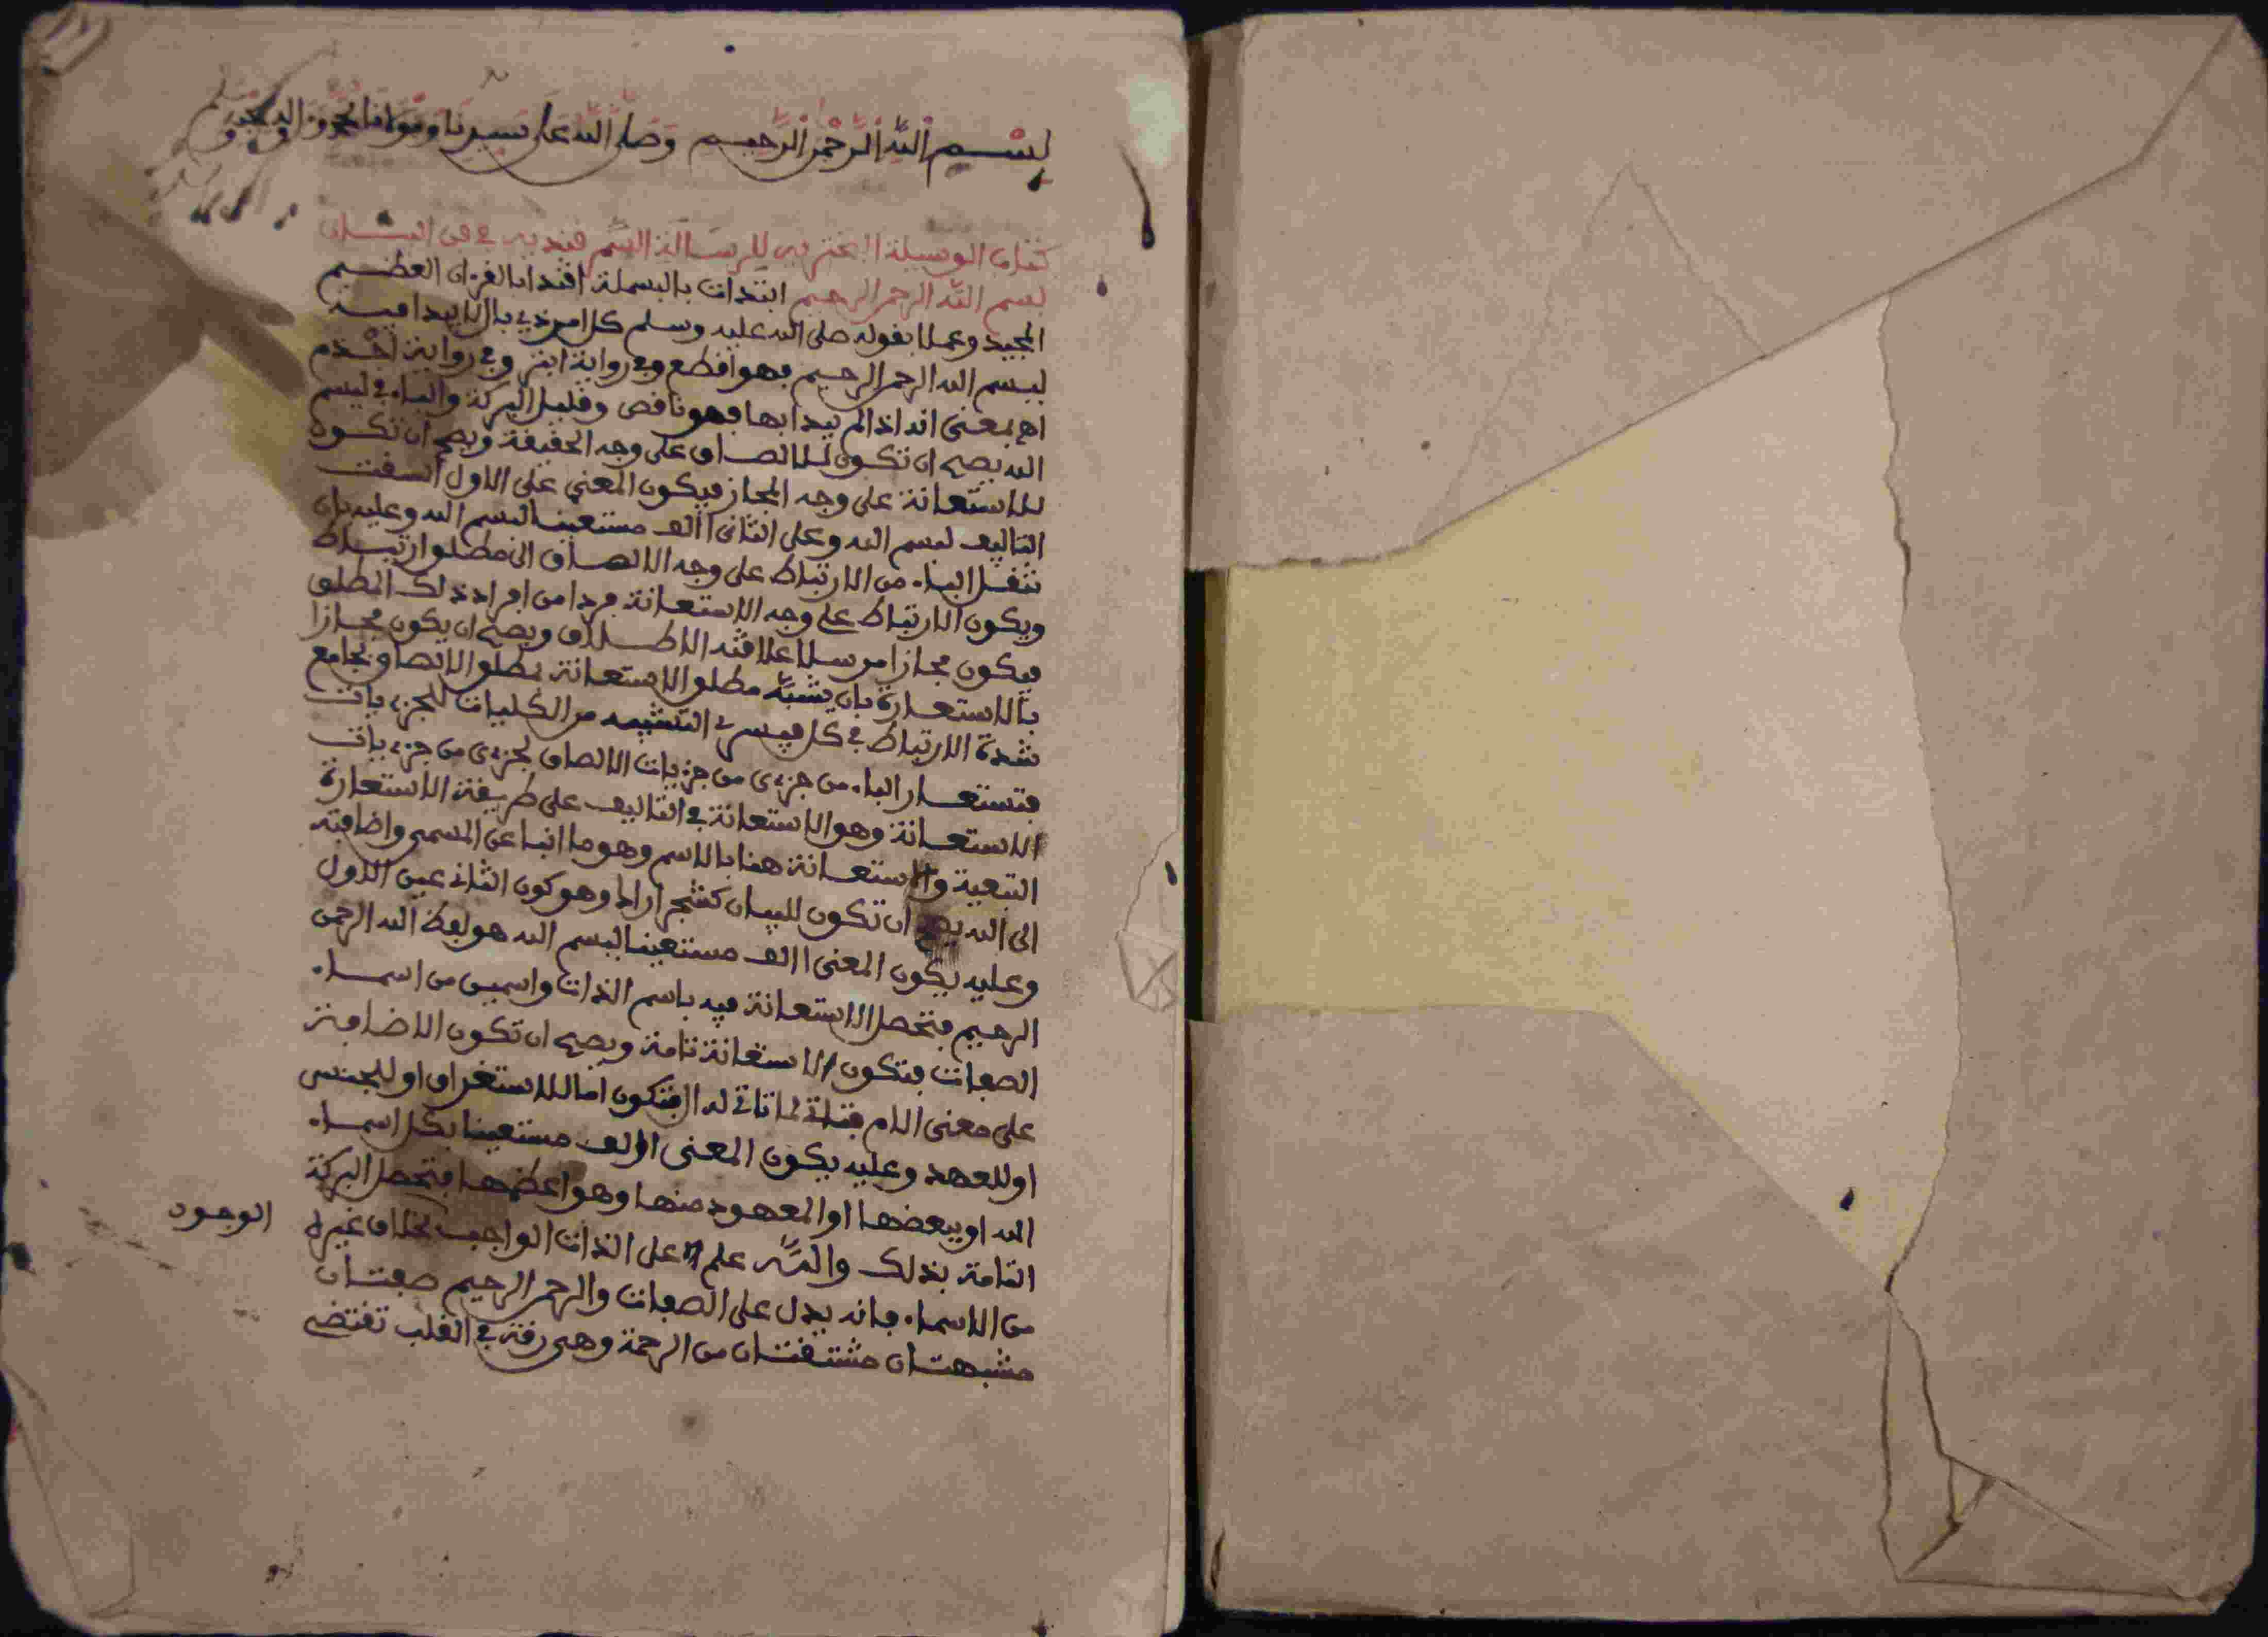 بسم الله الرحمن الرحيم وصلى الله على سيدنا ومولانا محمد وآله وصحبه وسلم
كتاب الوسيلة للرسالة السمرقندية في فن البيان
بسم الله الرحمن الرحيم ابتدات بالبسملة اقتداء بالقرءان العظيم
المجيد وعملا بقوله صلى الله عليه وسلم كل امر ذي بال لا يبدا فيه
ببسم الله الرحمن الرحيم فهو اقطع وفي رواية ابتر وفي رواية اجذم
اه بمعنى انه اذا لم يبدا بها فهو ناقص وقليل البركة والباء في بسم
الله يصح ان تكون للالصاق على وجه الحقيقة ويصح ان تكون
للاستعانة على وجه المجاز فيكون المعنى على الاول
التاليف ببسم الله وعلى الثاني االف مستعينا ببسم الله وعليه بان
تنقل الباء من الارتباط على وجه الالصاق الى مطلق ارتباط
ويكون الارتباط على وجه الاستعانة فردا من افراد ذلك المطلق
فيكون مجازا مرسلا علاقته الاطلاق ويصح ان يكون مجازا
بالاستعارة بان يشبه مطلق الاستعانة بمطلق الالصاق بجامع
شدة الارتباط في كل فيسري التشبيه من الكليات للجزءيات
فتستعار الباء من جزءي من جزيات الالصاق لجزءي من جزءيات
الاستعانة وهو الاستعانة في التاليف على طريقة الاستعارة
التبعية والاستعانة هنا بالاسم وهو ما انبا عن المسمى واضافته
الى الله يصح ان تكون للبيان كشجر اراك وهو كون الثاني عين الاول
وعليه يكون المعنى االف مستعينا ببسم الله هو لفظ الله الرحمن
الرحيم فتحصل الاستعانة فيه باسم الذات واسمين من اسماء
الصفات فتكون الاستعانة تامة ويصح ان تكون الاضافة
على معنى اللام فتاتي لما تاتي له ال فتكون اما للاستغراق او للجنس
او للعهد وعليه يكون المعنى اؤلف مستعينا بكل اسماء
الله او ببعضها او المعهود منها وهو اعظمها فتحصل البركة
التامة بذلك والله علم على الذات الواجب بخلاف غيره
الوجود
من الاسماء فانه يدل على الصفات والرحمن الرحيم صفتان
مشبهتان مشتقتان من الرحمة وهي رقة في القلب تقتضي